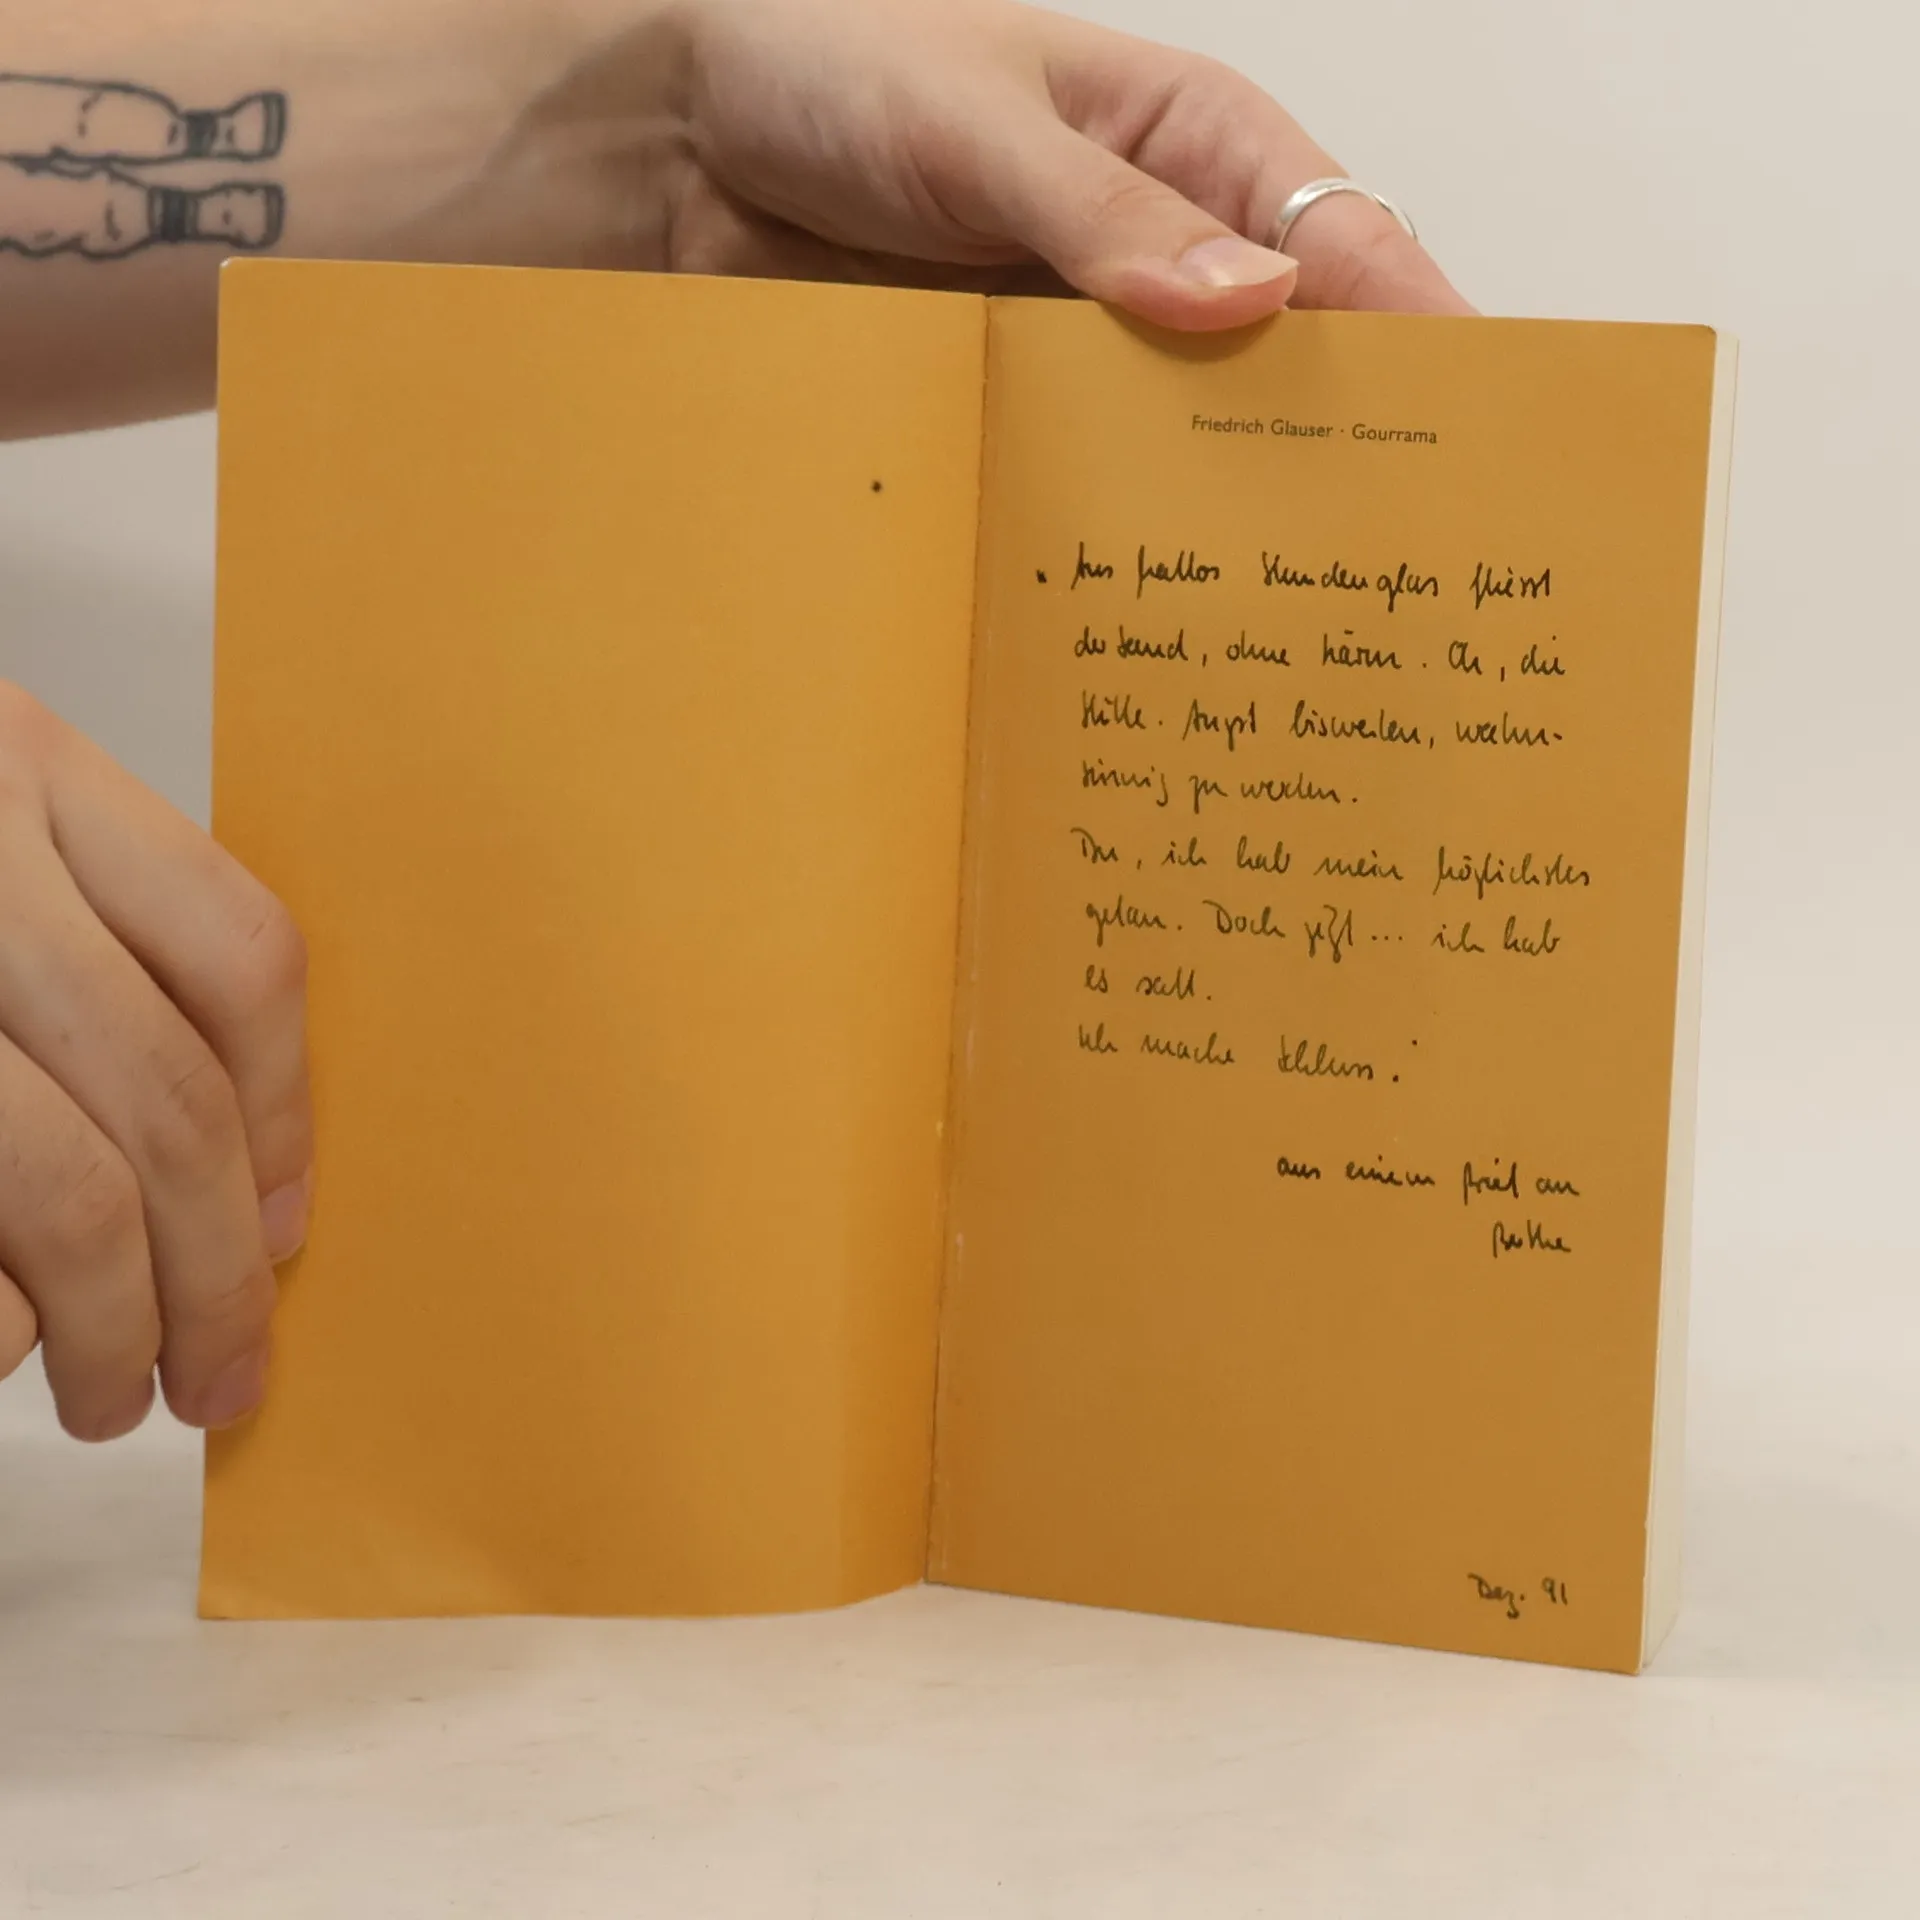 Friedrich Glauser · Gourrama
" Aus Stundenglas fliesst
der Sand, ohne Lärm. Oh, die
Stille. Angst bisweilen, wahn-
sinnig zu werden.
Du, ich hab mein Möglichstes
getan. Doch jetzt ... ich hab
es satt.
Ich mache Schluss."
aus einem Brief an
Berthe
Dez. 91